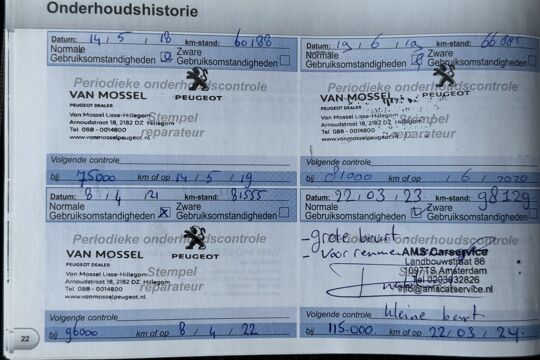 Onderhoudshistorie
Datum: 14 / 5 / 18 km-stand: 60188
Normale Gebruiksomstandigheden Zware Gebruiksomstandigheden
Periodieke onderhoudscontrole
VAN MOSSEL PEUGEOT
PEUGEOT DEALER
Van Mossel Lisse-Hillegom
Arnoudstraat 18, 2182 DZ Hillegom
Tel. 088 - 0014800
www.vanmosselpeugeot.nl
Stempel reparateur
Volgende controle
bij 75000 km of op 14 / 5 / 19
Datum: 19 / 6 / 19 km-stand:
Normale Gebruiksomstandigheden Zware Gebruiksomstandigheden
Periodieke onderhoudscontrole
VAN MOSSEL PEUGEOT
PEUGEOT DEALER
Van Mossel Lisse-Hillegom
Arnoudstraat 18, 2182 DZ Hillegom
Tel. 088 - 0014800
www.vanmosselpeugeot.nl
Stempel reparateur
Volgende controle
bij 81000 km of op / 6 / 2020
Datum: 8 / 4 / 21 km-stand: 81555
Normale Gebruiksomstandigheden Zware Gebruiksomstandigheden
Periodieke onderhoudscontrole
VAN MOSSEL PEUGEOT
PEUGEOT DEALER
Van Mossel Lisse-Hillegom
Arnoudstraat 18, 2182 DZ Hillegom
Tel. 088 - 0014800
www.vanmosselpeugeot.nl
Stempel reparateur
Volgende controle
bij 96000 km of op 8 / 4 / 22
Datum: 22 / 03 / 23 km-stand: 98129
Normale Gebruiksomstandigheden Zware Gebruiksomstandigheden
- grote beurt
- voor remmen
AMS Carservice
Landbouwstraat 86
1097TS Amsterdam
Tel 0203632826
info@amscarservice.nl
kleine beurt
Volgende controle
bij 115.000 km of op 22 / 03 / 24
22